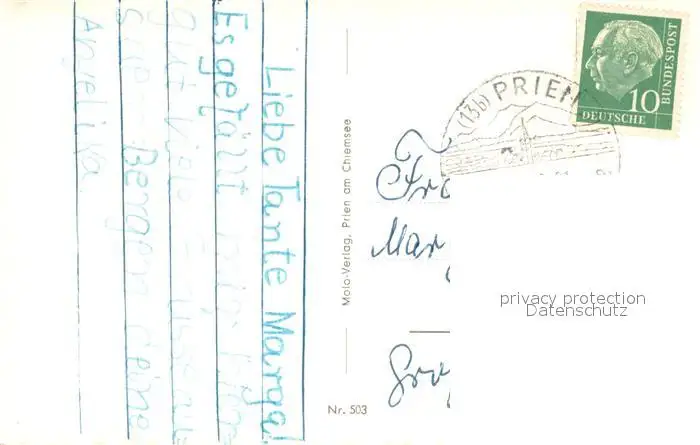 Liebe Tante Marga!
Es gefällt mir hier
gut. Viele Grüsse aus
Bergen deine
Angelika
Molo-Verlag, Prien am Chiemsee
Nr. 503
(13b) PRIEN
10
DEUTSCHE
BUNDESPOST
Mar
privacy protection
Datenschutz